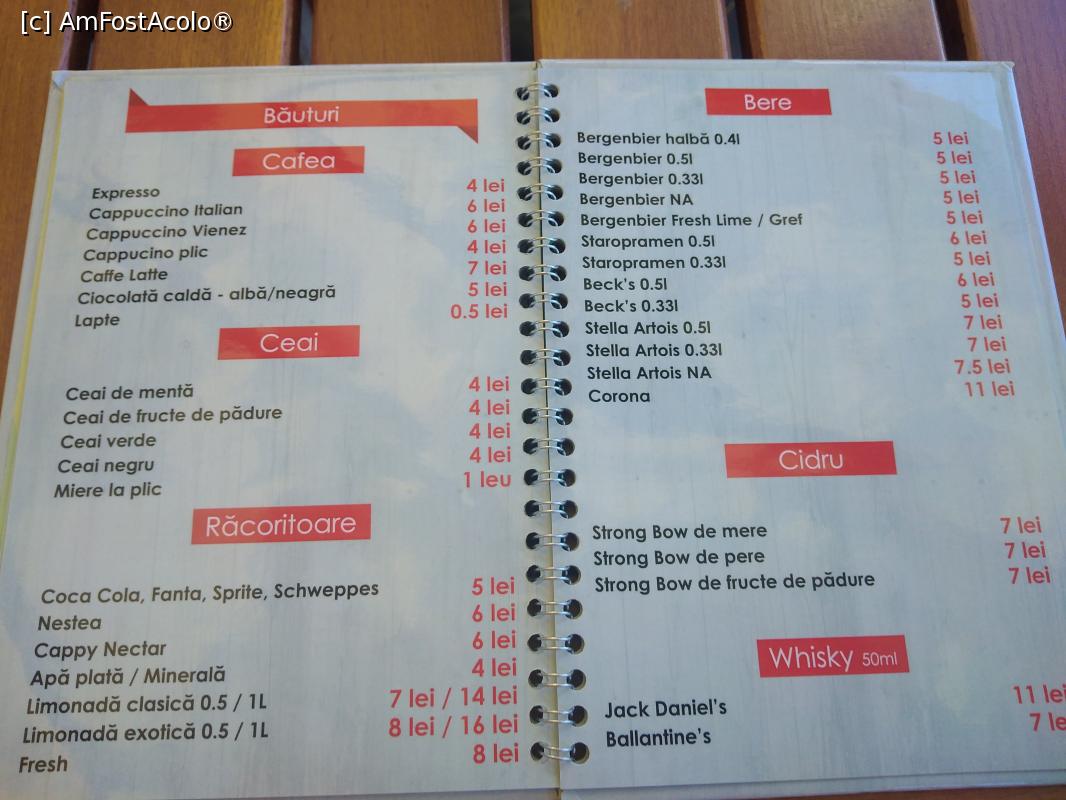 [c] AmFostAcolo®
Băuturi
Cafea
Expresso 4 lei
Cappuccino Italian 6 lei
Cappuccino Vienez 6 lei
Cappucino plic 4 lei
Caffe Latte 7 lei
Ciocolată caldă - albă/neagră 5 lei
Lapte 0.5 lei
Ceai
Ceai de mentă 4 lei
Ceai de fructe de pădure 4 lei
Ceai verde 4 lei
Ceai negru 4 lei
Miere la plic 1 leu
Răcoritoare
Coca Cola, Fanta, Sprite, Schweppes 5 lei
Nestea 6 lei
Cappy Nectar 6 lei
Apă plată / Minerală 4 lei
Limonadă clasică 0.5 / 1L 7 lei / 14 lei
Limonadă exotică 0.5 / 1L 8 lei / 16 lei
Fresh 8 lei
Bere
Bergenbier halbă 0.4l 5 lei
Bergenbier 0.5l 5 lei
Bergenbier 0.33l 5 lei
Bergenbier NA 5 lei
Bergenbier Fresh Lime / Gref 5 lei
Staropramen 0.5l 6 lei
Staropramen 0.33l 5 lei
Beck's 0.5l 6 lei
Beck's 0.33l 5 lei
Stella Artois 0.5l 7 lei
Stella Artois 0.33l 7 lei
Stella Artois NA 7.5 lei
Corona 11 lei
Cidru
Strong Bow de mere 7 lei
Strong Bow de pere 7 lei
Strong Bow de fructe de pădure 7 lei
Whisky 50ml
Jack Daniel's 11 lei
Ballantine's 7 le